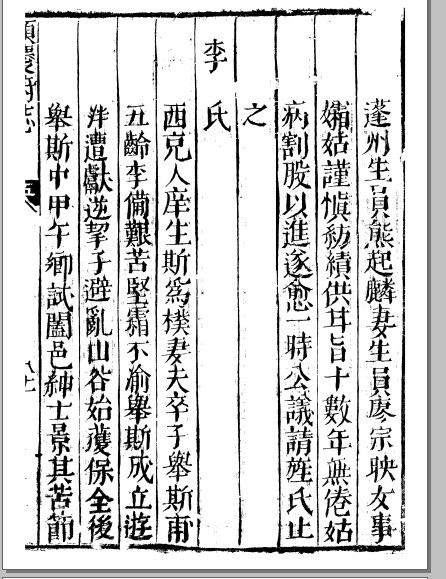 蓬州生員熊起麟妻生員廖宗映女事
孀姑謹慎紡績供甘旨十數年無倦姑
病割股以進遂愈一時公議請旌氏止
之
李氏
西充人庠生斯為樸妻夫卒子舉斯甫
五齡李備艱苦堅霜不渝舉斯成立遊
泮遭獻逆挈子避亂山谷始獲保全後
舉斯中甲午鄉試闔邑紳士景其苦節
順慶府志